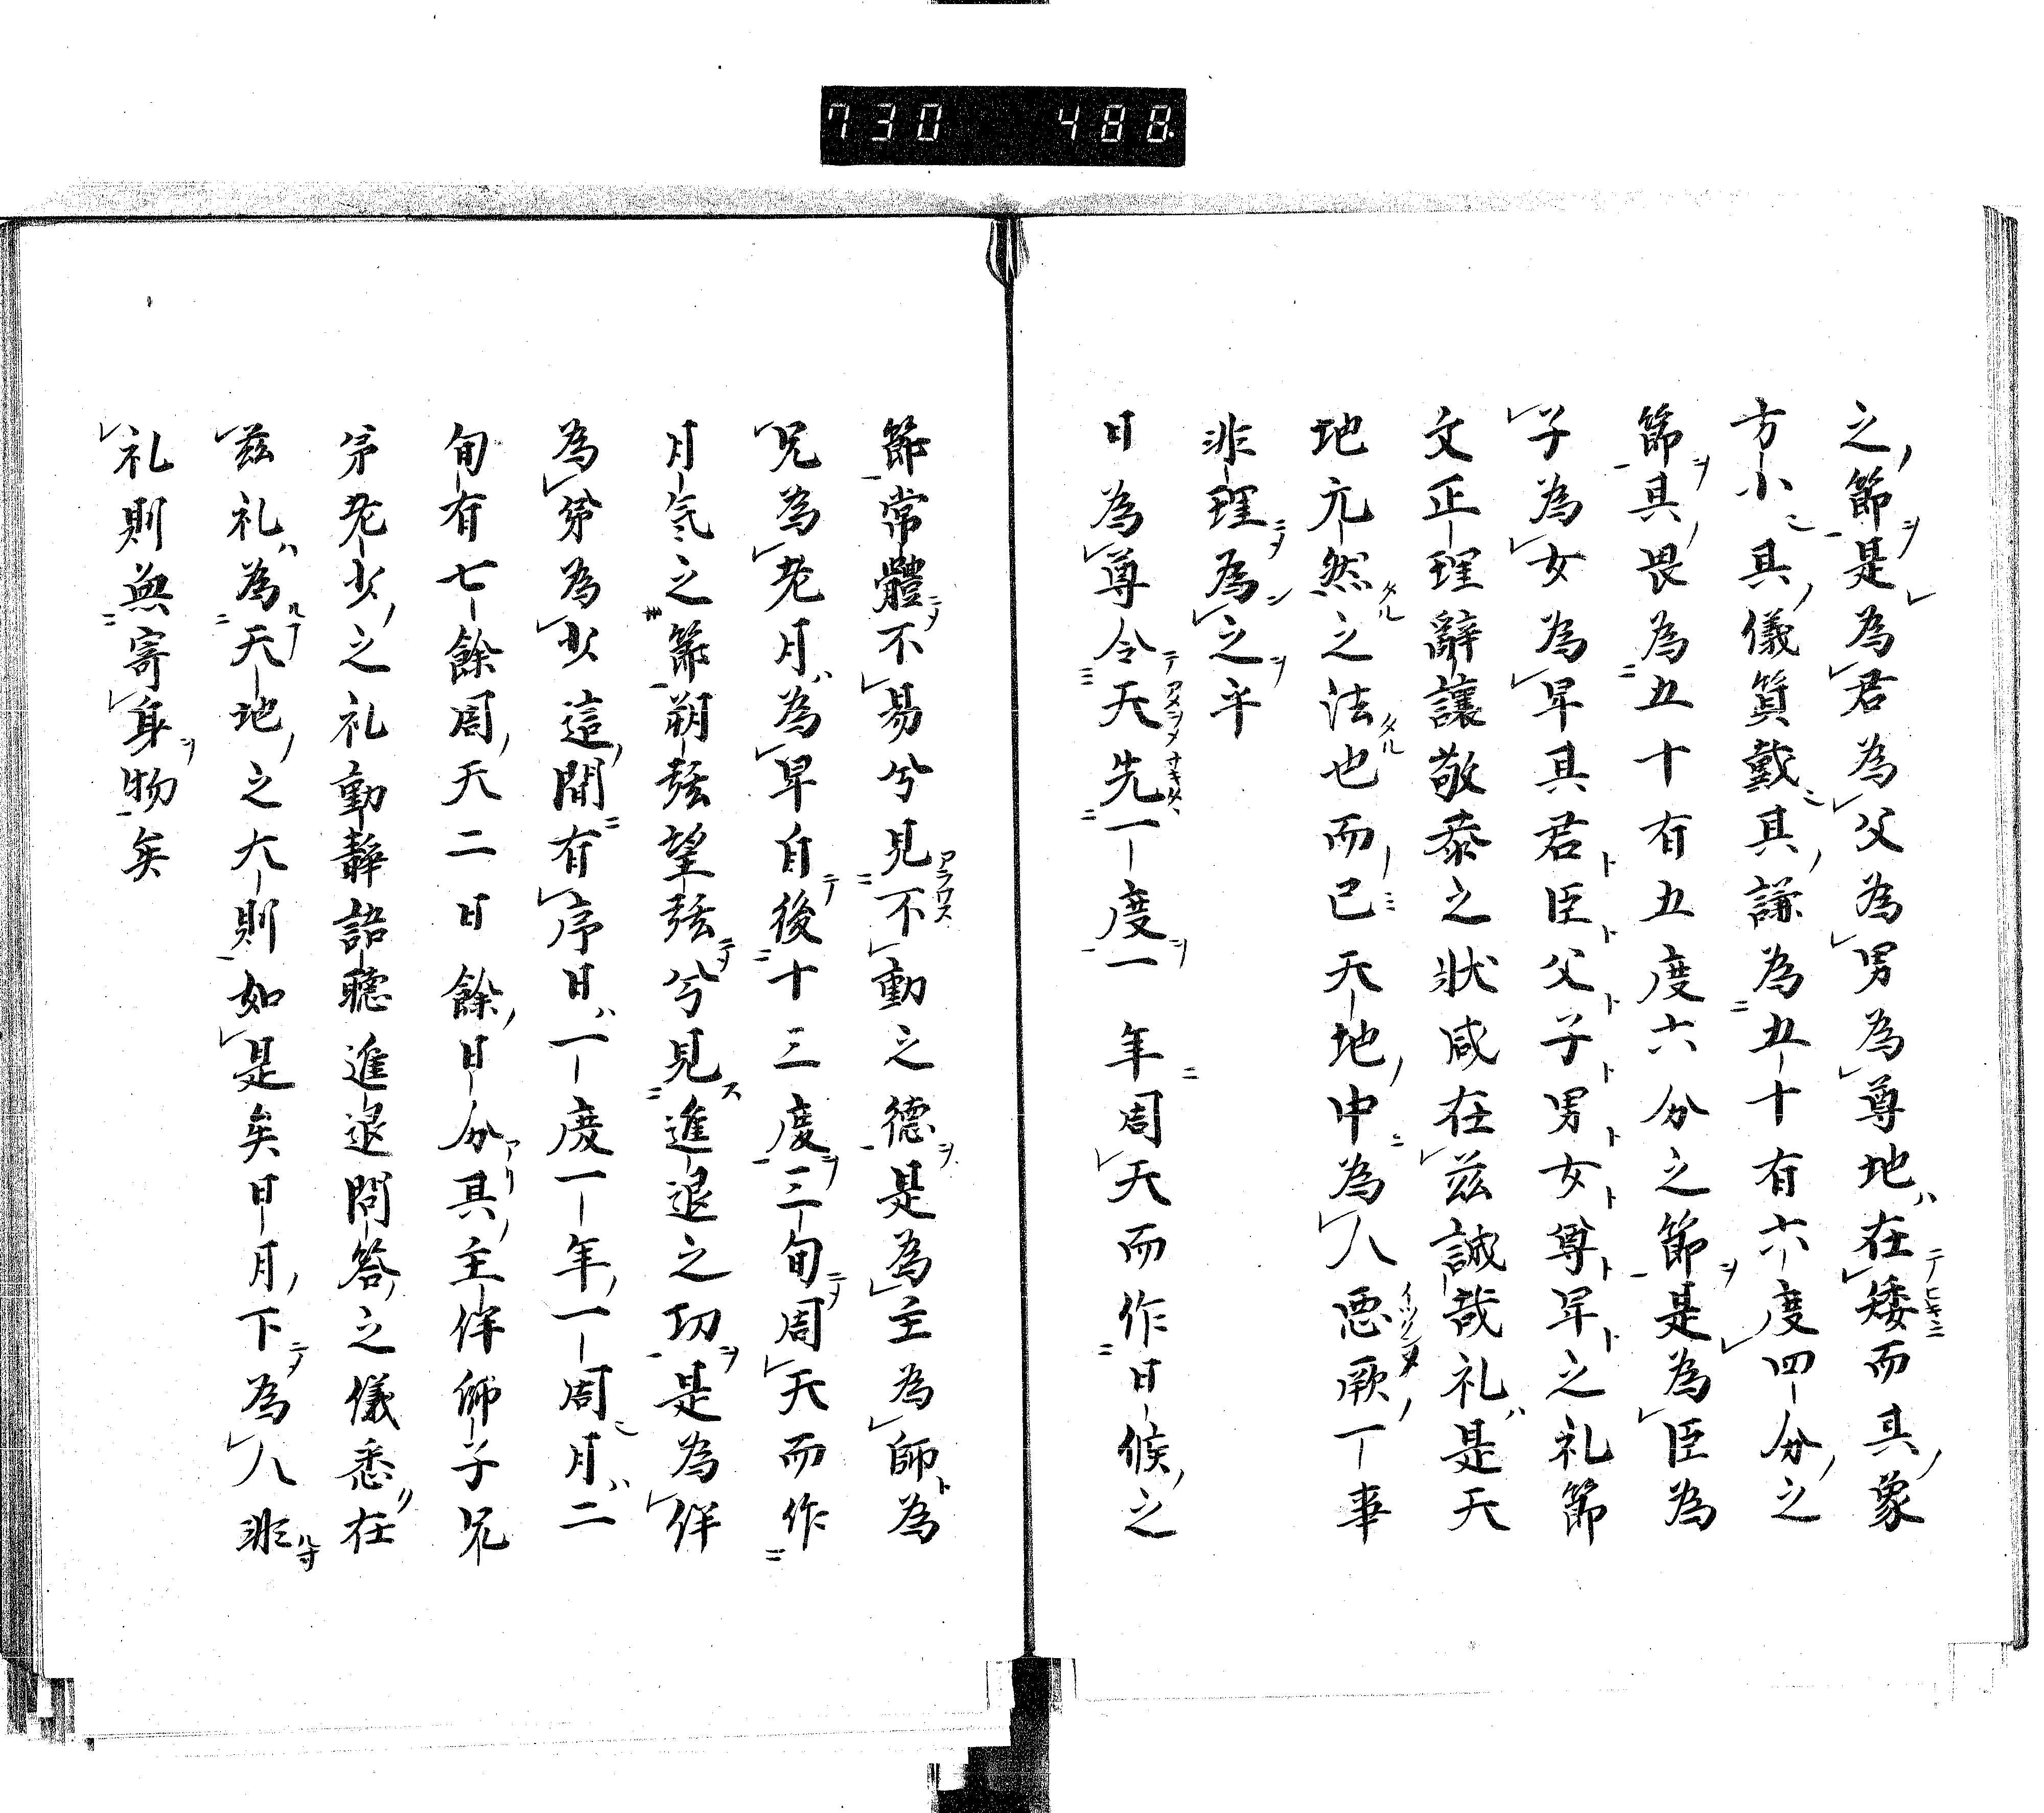 730 488
之節是為君為父為男為尊地在矮而其象
方小其儀質戴其謙為五十有六度四分之
節其畏為五十有五度六分之節是為臣為
子為女為卑其君臣父子男女尊卑之礼節
文正理辭讓敬泰之状咸在茲誠哉礼是天
地亢然之法也而已天地中為人悪厥一事
非理為之乎
日為尊令天先一度一年周天而作日候之
節常體不易兮見不動之德是為主為師為
兄為老月為卑自後十三度三旬周天而作
月気之節朔弦望弦兮見進退之功是為伴
為弟為少這間有序日一度一年一周月二
旬有七餘周天二日餘日分具主伴師子兄
弟老少之礼動静語聴進退問答之儀悉在
茲礼為天地之大則如是矣日月下為人非
礼則無寄身物矣